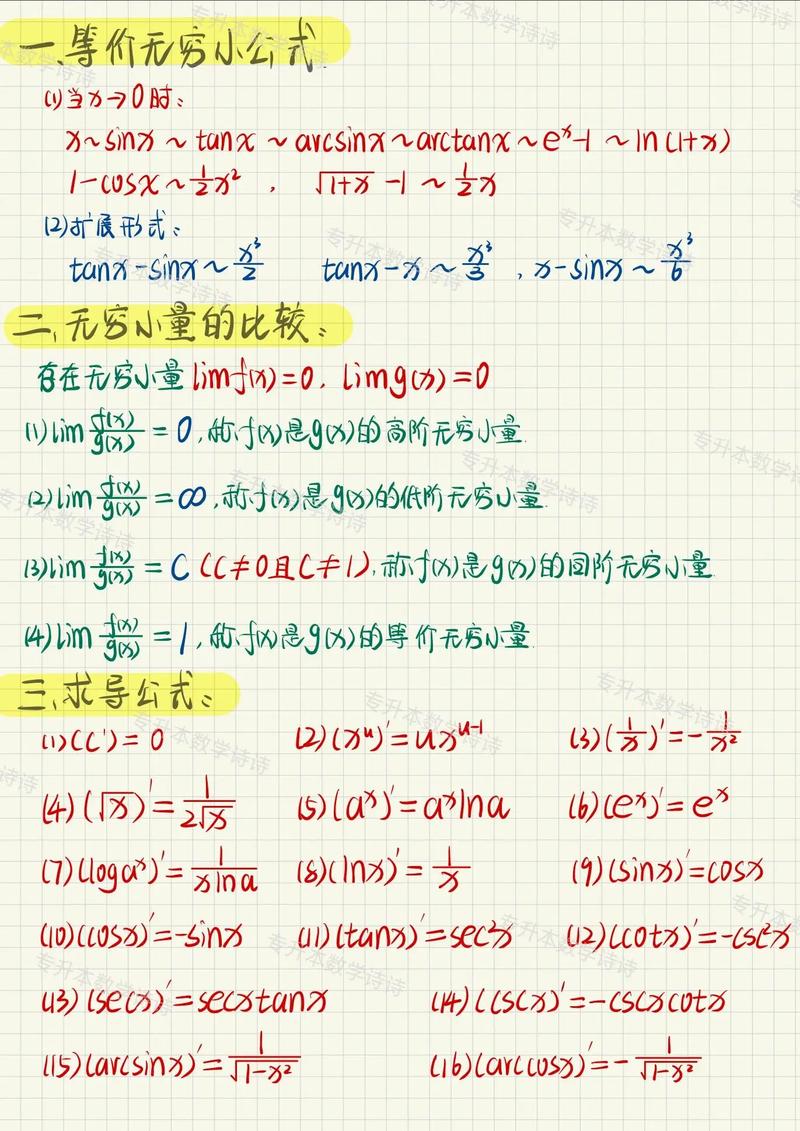 一、等价无穷小公式
(1)当x→0时:
x~sinx~tanx~arcsinx~arctanx~eˣ-1~ln(1+x)
1-cosx~1/2x², √(1+x)-1~1/2x
(2)扩展形式:
tanx-sinx~x³/2 tanx-x~x³/3, x-sinx~x³/6
二、无穷小量的比较:
存在无穷小量limf(x)=0, limg(x)=0
(1)lim f(x)/g(x)=0,称f(x)是g(x)的高阶无穷小量.
(2)lim f(x)/g(x)=∞,称f(x)是g(x)的低阶无穷小量.
(3)lim f(x)/g(x)=C(C≠0且C≠1),称f(x)是g(x)的同阶无穷小量.
(4)lim f(x)/g(x)=1,称f(x)是g(x)的等价无穷小量.
三、求导公式:
(1)(C')=0 (2)(xᵘ)'=uxᵘ⁻¹ (3)(1/x)'=-1/x²
(4)(√x)'=1/(2√x) (5)(aˣ)'=aˣlna (6)(eˣ)'=eˣ
(7)(logaˣ)'=1/(xlna) (8)(lnx)'=1/x (9)(sinx)'=cosx
(10)(cosx)'=-sinx (11)(tanx)'=sec²x (12)(cotx)'=-csc²x
(13)(secx)'=secxtanx (14)(cscx)'=-cscxcotx
(15)(arcsinx)'=1/√(1-x²) (16)(arccosx)'=-1/√(1-x²)
专升本数学诗诗